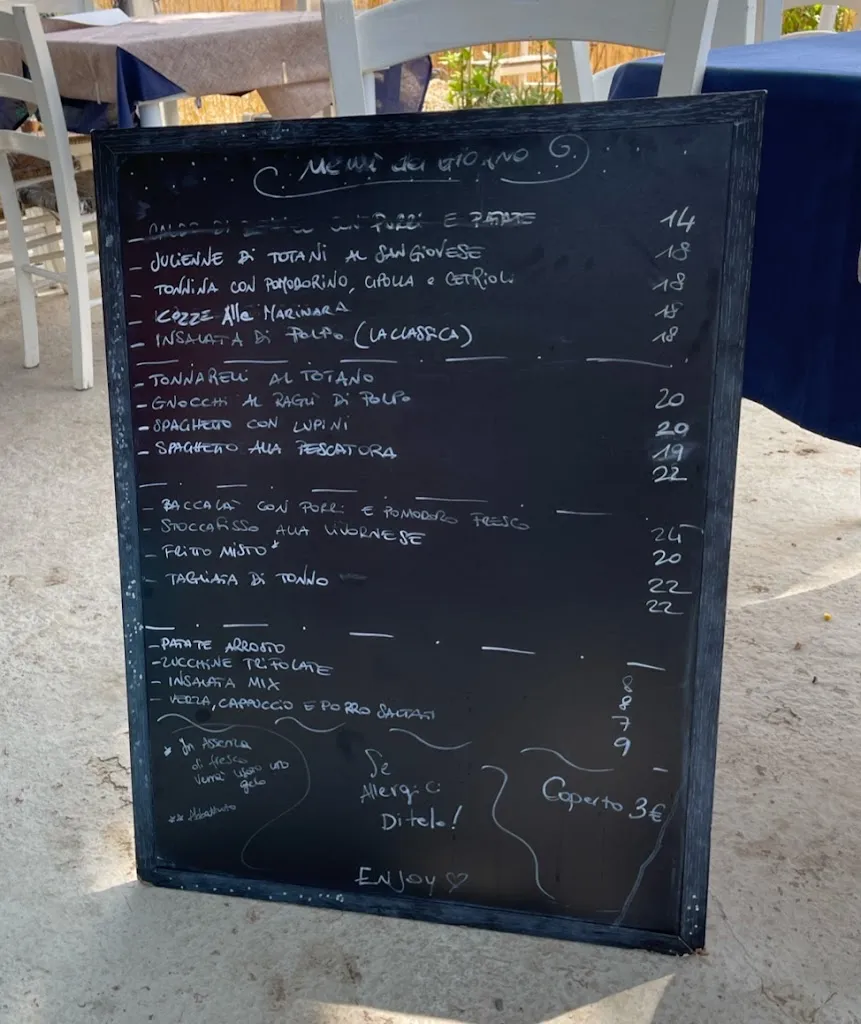 Menù del GIORNO
CON PORRI E PATATE 14
- JULIENNE DI TOTANI AL SANGIOVESE 18
- TONNINA CON POMODORINO, CIPOLLA e CETRIOLI 18
- COZZE Alla MARINARA 18
- INSALATA DI POLPO (LA CLASSICA) 18
- TONNARELLI AL TOTANO 20
- GNOCCHI AL RAGÙ DI POLPO 20
- SPAGHETTO CON LUPINI 19
- SPAGHETTO ALLA PESCATORA 22
- BACCALÀ CON PORRI E POMODORO FRESCO 24
- STOCCAFISSO ALLA LIVORNESE 20
- FRITTO MISTO* 22
- TAGLIATA DI TONNO 22
- PATATE ARROSTO 8
- ZUCCHINE TRIFOLATE 8
- INSALATA MIX 7
- VERZA, CAPPUCCIO E PORRO SALTATI 9
* In Assenza
di fresco
verrà usato uno
gelo
** Abbattuto
Se
Allergici
Ditelo!
Coperto 3€
ENJOY ♡